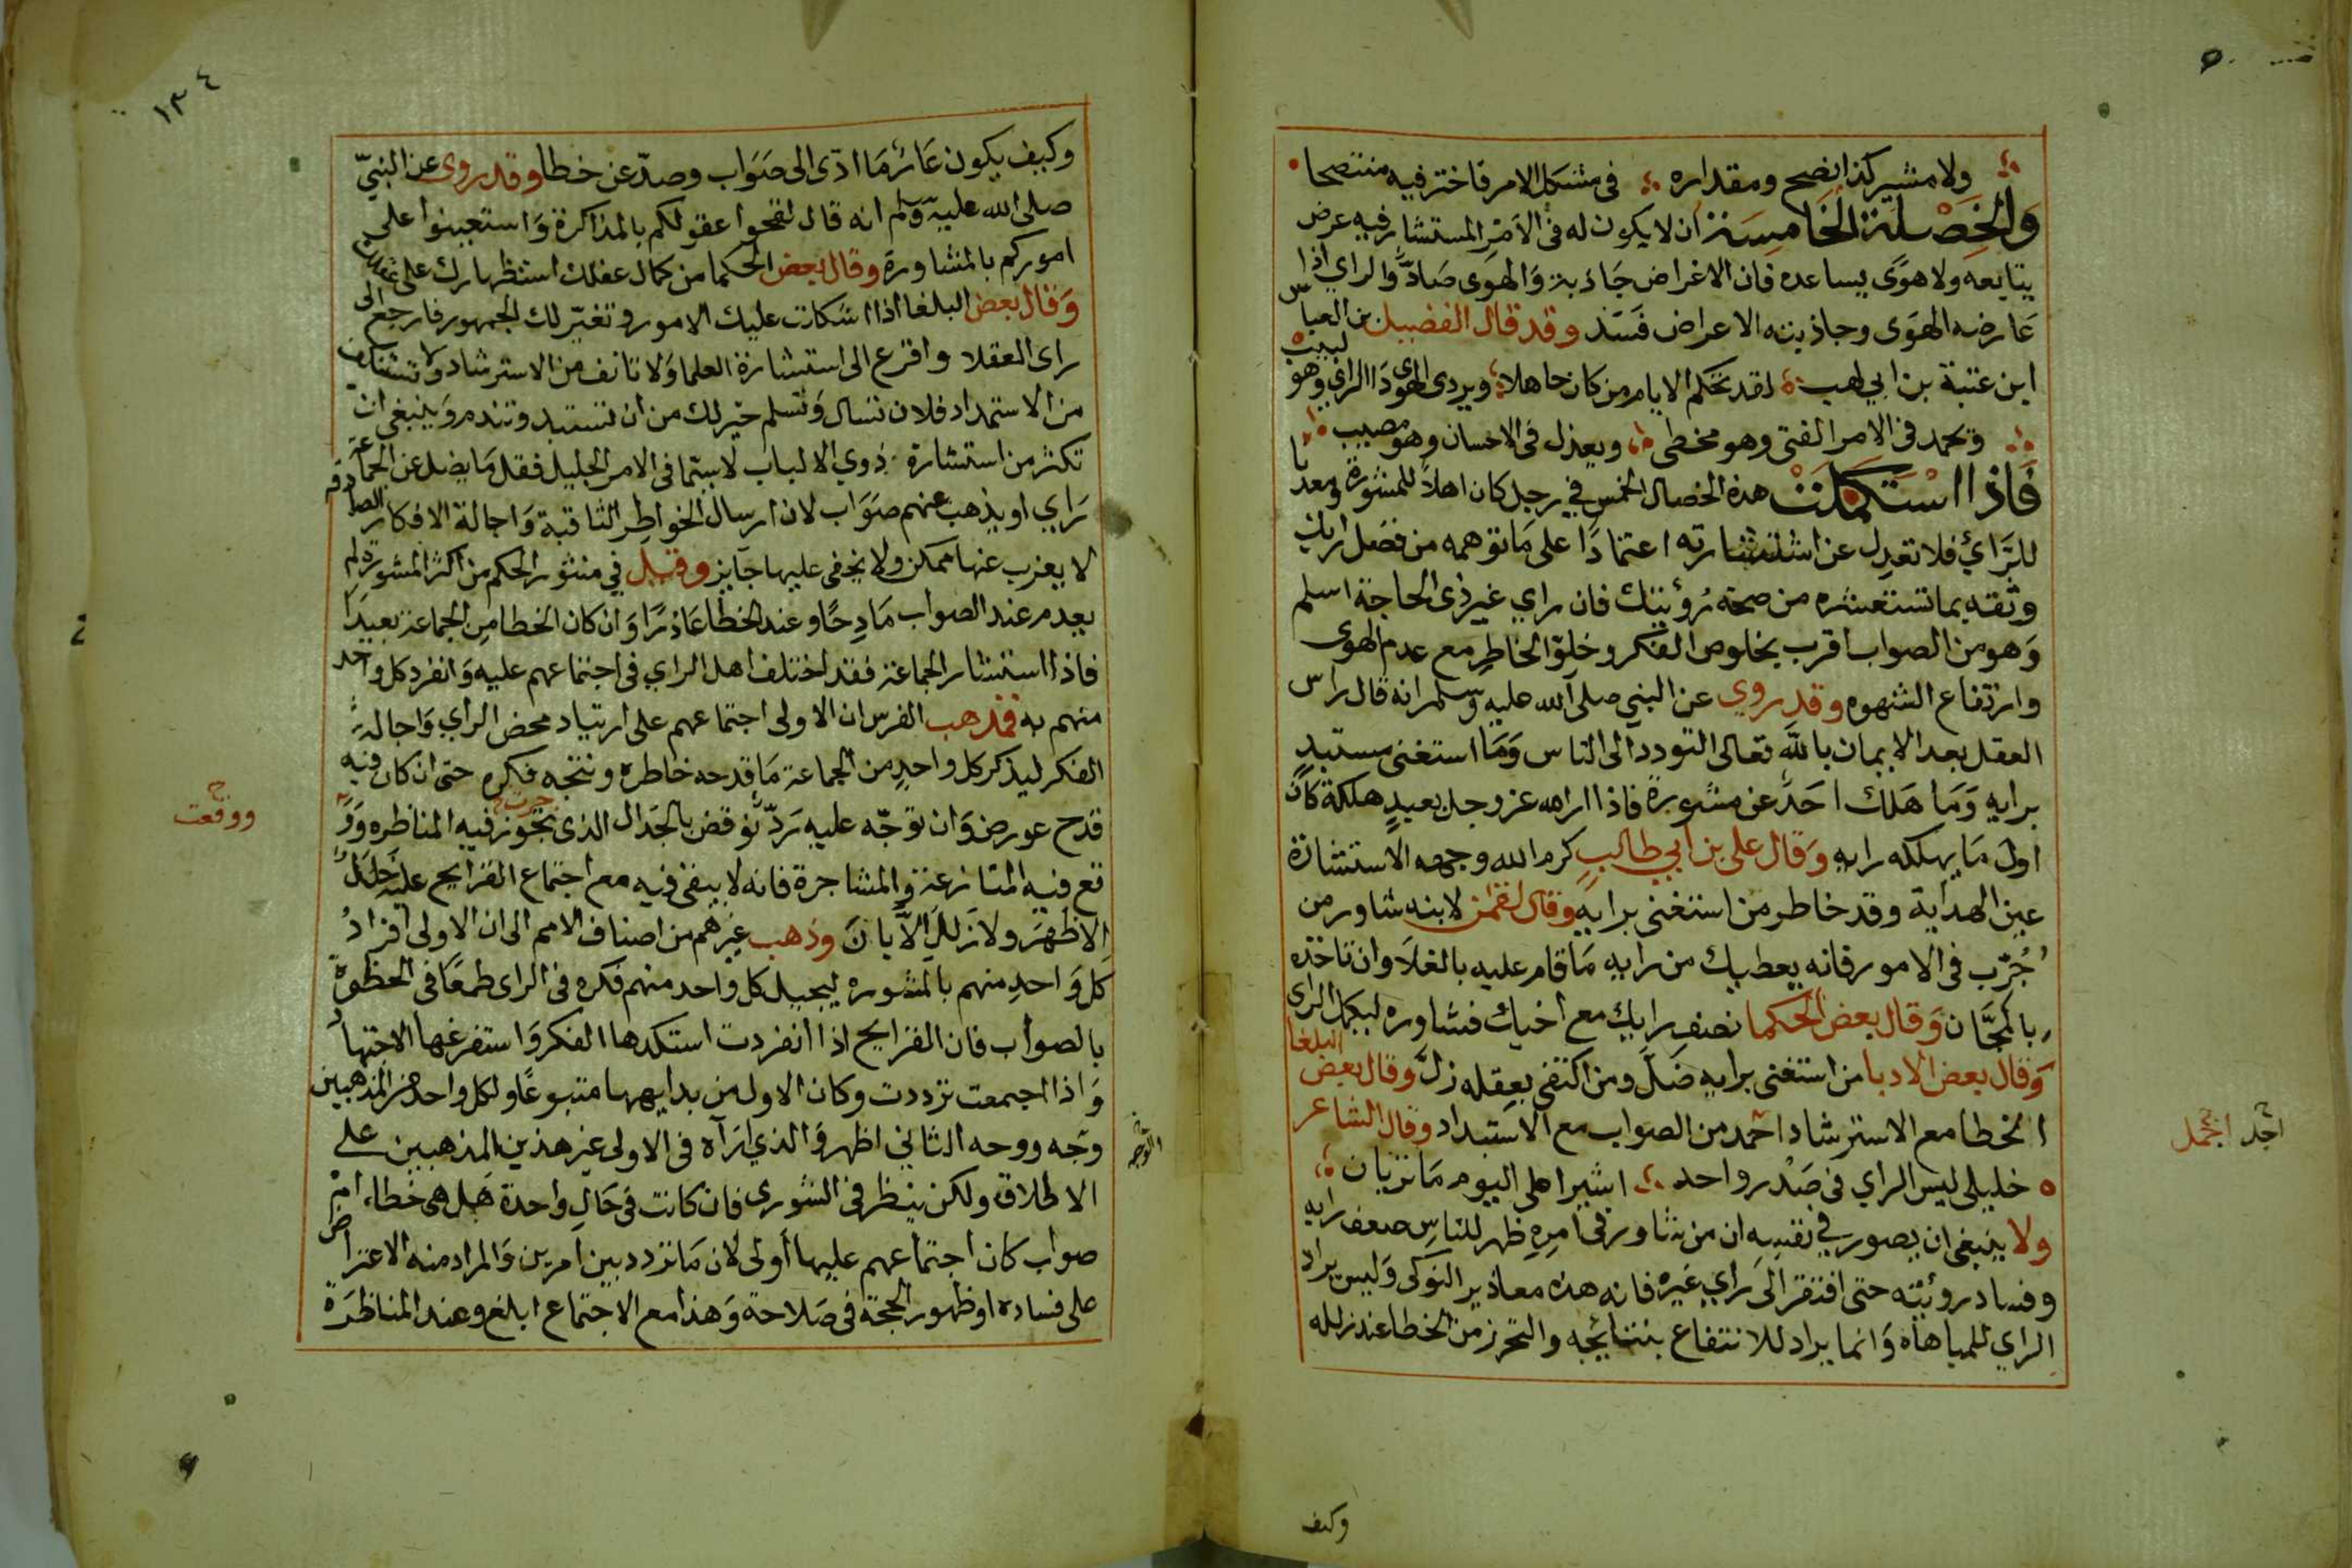 ولا مشير كذا نصح ومقداره في مشكل الامر فاختر فيه منتصحا
والخصلة الخامسة ان لا يكون له في الامر المستشار فيه عرض
يتابعه ولا هوى يساعده فان الاغراض جاذبة والهوى صاد والراي اذا
عارضه الهوى وجاذبته الاعراض فسد وقد قال الفضيل بن العباس
ابن عتبة بن ابي لهب لقد تحكم الايام من كان جاهلا ويردي الهوى ذا الراي وهو لبيب
وتحمد في الامر الفتى وهو مخطي ويعذل في الاحسان وهو مصيب
فاذا استكملت هذه الخصال الخمس في رجل كان اهلا للمشورة ومعدنا
للراي فلا تعدل عن استشارته اعتمادا على ما توهمه من فضل رايك
وثقة بما تستشعره من صحة رؤيتك فان راي غير ذي الحاجة اسلم
وهو من الصواب اقرب بخلوص الفكر وخلو الخاطر مع عدم الهوى
وارتفاع الشهوه وقد روي عن النبي صلى الله عليه وسلم انه قال راس
العقل بعد الايمان بالله تعالى التودد الى الناس وما استغنى مستبد
برايه وما هلك احد عن مشورة فاذا اراد الله عز وجل بعبد هلكة كان
اول ما يهلكه رايه وقال علي بن ابي طالب كرم الله وجهه الاستشارة
عين الهداية وقد خاطر من استغنى برايه وقال لقمن لابنه شاور من
جرب في الامور فانه يعطيك من رايه ما قام عليه بالغلا وان تاخذه
بالمجان وقال بعض الحكما نصف رايك مع اخيك فشاوره ليكمل الراي
وقال بعض الادبا من استغنى برايه ضل ومن اكتفى بعقله زل وقال بعض البلغا
الخطا مع الاسترشاد احمد من الصواب مع الاستبداد وقال الشاعر
خليلي ليس الراي في صدر واحد اشيرا علي اليوم ما تريان
ولا ينبغي ان يصور في نفسه ان من شاور في امره ظهر للناس ضعف رايه
وفساد روئيته حتى افتقر الى راي غيره فانه هذه معاذير النوكى وليس يراد
الراي للمباهاة وانما يراد للانتفاع بنتائجه والتحرز من الخطا عند زلله
وكيف
اجمل
١٣٤
وكيف يكون عائرما ادى الى صواب وصد عن خطا وقد روى عن النبي
صلى الله عليه وسلم انه قال لقحوا عقولكم بالمذاكرة واستعينوا على
اموركم بالمشاورة وقال بعض الحكما من كمال عقلك استظهارك على عقلك
وقال بعض البلغا اذا اشكلت عليك الامور وتغير لك الجمهور فارجع الى
راى العقلا وافزع الى استشارة العلما ولا تانف من الاسترشاد ولا تستنكف
من الاستمداد فلان تسال وتسلم خير لك من ان تستبد وتندم وينبغي ان
تكثر من استشارة ذوي الالباب لا سيما في الامر الجليل فقل ما يضل عن الجماعة
راي او يذهب عنهم صواب لان ارسال الخواطر الثاقبة واجالة الافكار الصادقه
لا يعزب عنها ممكن ولا يخفى عليها جايز وقيل في منثور الحكم من اكثر المشورة لم
يعدم عند الصواب مادحا وعند الخطا عاذرا وان كان الخطا من الجماعة بعيدا
فاذا استشار الجماعة فقد اختلف اهل الراي في اجتماعهم عليه وانفرد كل واحد
منهم به فمذهب الفرس ان الاولى اجتماعهم على ارتياد محض الراي واجالة
الفكر ليذكر كل واحد من الجماعة ما قدحه خاطره ونتجه فكره حتى ان كان فيه
قدح عورض وان توجه عليه رد نوقض بالجدال الذي تجوز فيه المناظره وو
تع فيه المنازعة والمشاجرة فانه لا يبقى فيه مع اجتماع القرايح عليه خلل
الا ظهر ولا زلل الا بان وذهب غيرهم من اصناف الامم الى ان الاولى افراد
كل واحد منهم بالمشوره ليجيل كل واحد منهم فكره في الراى طمعا في الحظوة
بالصواب فان القرايح اذا انفردت استكدها الفكر واستفرغها الاجتهاد
واذا اجمعت ترددت وكان الاول من بدايهها متبوعا ولكل واحد من المذهبين
وجه ووجه الثاني اظهر والذي اراه في الاولى غير هذين المذهبين على
الاطلاق ولكن ينظر في الشورى فان كانت في حال واحدة هل هي خطاء ام
صواب كان اجتماعهم عليها اولى لان ما تردد بين امرين والمراد منه الاعتراض
على فساده او ظهور الحجة في صلاحة وهذا مع الاجتماع ابلغ وعند المناظرة
ووقعت